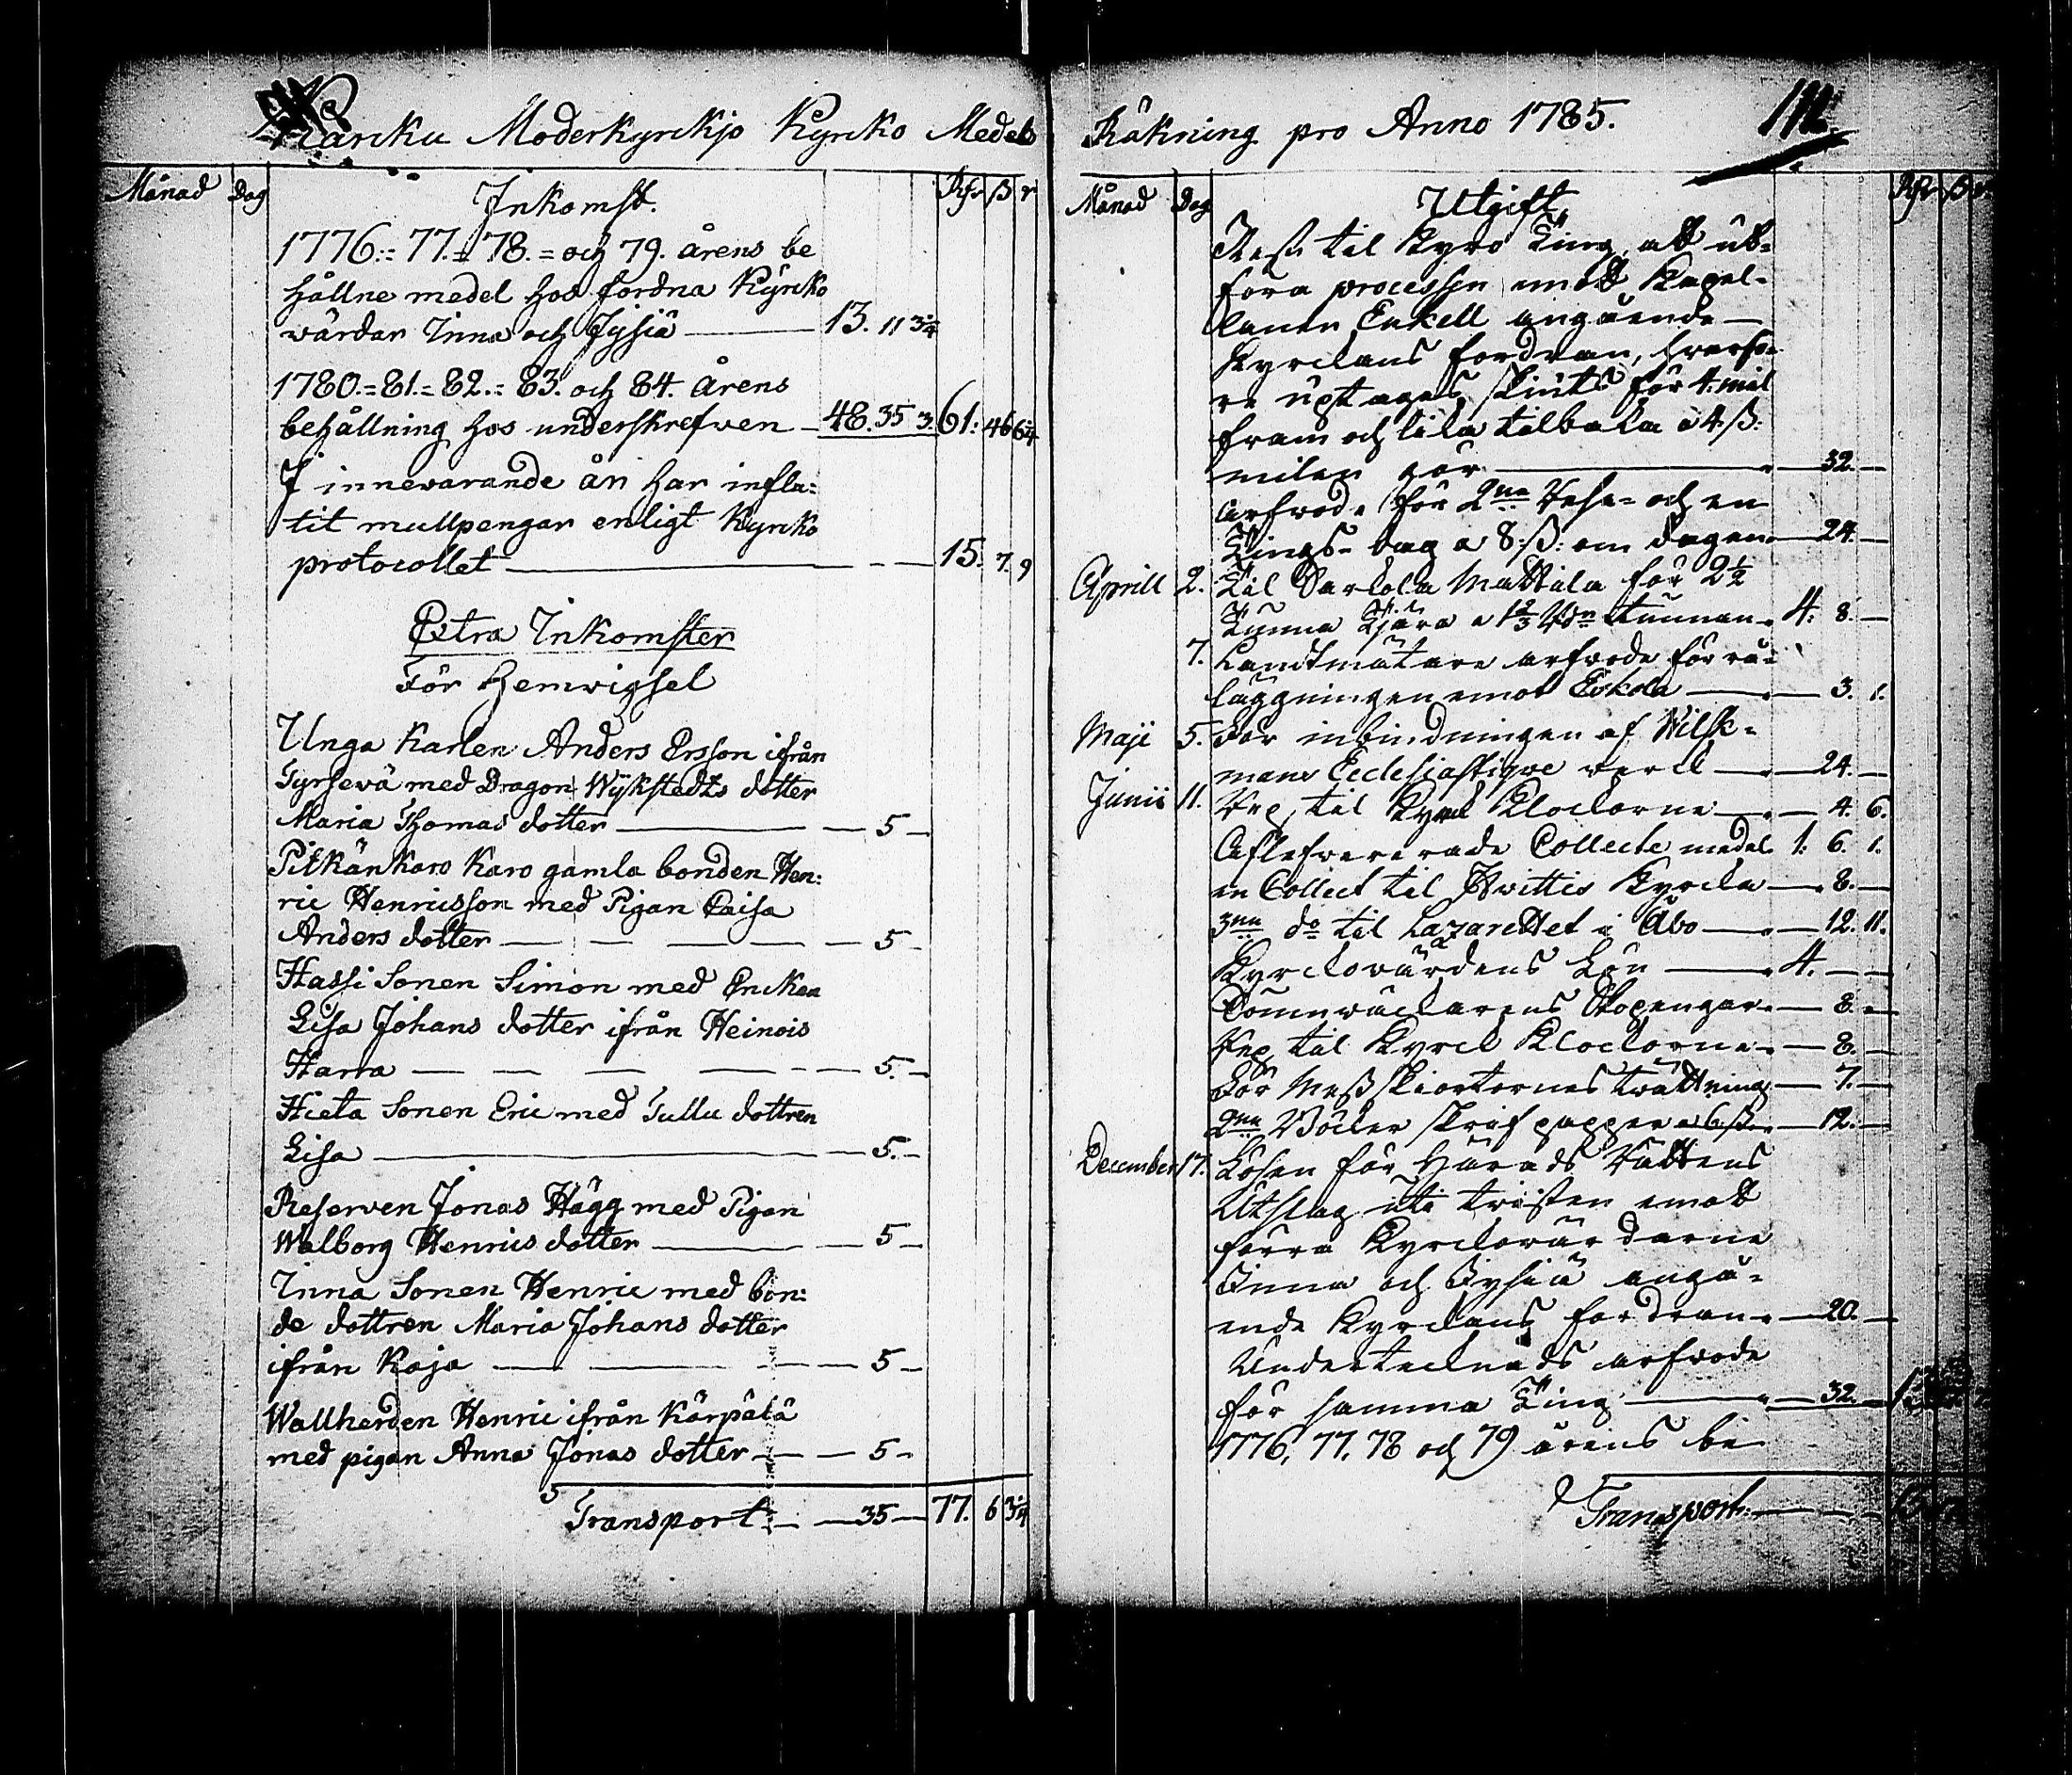 Karcku Moderkyrkjo Kyrcko Medels
Månad Dag Inkomst. Rdr ß r
1776.=77.=78.= och 79. årens be
hållne medel hos fordna Kyrcko
wärdar Inna och Jysiä — 13. 11 3/4
1780.=81.=82.=83. och 84. årens
behållning hos underskrefven — 48. 35 3. 61: 46 6 3/4
I innevarande år har influ=
tit mullpengar enligt Kyrcko
protocollet — 15. 7. 9
Extra Inkomster
För Hemvigsel
Unga Karlen Anders Ersson ifrån
Tyrfevä med Dragon Wykstedts dotter
Maria Thomas dotter — 5 —
Pitkänkaro Karo gamla bonden Hen:
ric Henricsson med Pigan Caisa
Anders dotter — 5 -
Hassi Sonen Simon med Enckan
Lisa Johans dotter ifrån Heinois
Harra — 5. —
Hieta Sonen Eric med Tullu dottren
Lisa — 5. —
Reserven Jonas Hägg med Pigan
Walborg Henrics dotter — 5 —
Inna Sonen Henric med bon:
de dottren Maria Johans dotter
ifrån Koja — 5 —
Wallherden Henric ifrån Kärpälä
med pigan Anna Jonas dotter — 5 -
Transport — 35 — 77. 6 3 3/4
Räkning pro Anno 1785. 112
Månad Dag Utgift Rdr ß r
Resa til Kyro Ting, att ut=
föra processen emott Capel=
lanen Enkell angående
Kyrckans fordran, hvarfö=
re uptages skjuts för 4. mil
fram och lika tilbaka à 4 ß:
milen gör — 32. —
Arfvode för 2ne Rese= och en
Tings=dag a 8 ß: om dagen — 24. —
Aprill 2. Til Sarkola Mattila för 2 1/2
Tunna Tjära a 1 2/3 Rdr tunnan — 4. 8. —
7. Landtmätare arfvode för rå=
läggningen emot Eskola — 3. 1.
Maji 5. För inbindningen af Wilsk=
mans Ecclesiastique verck — 24. —
Junii 11. Rep til Kyrck Klockorne — 4. 6.
Aflefvererade Collecte medel 1: 6. 1.
en Collect til Hvittis Kyrcka — 8. —
3ne do til Lazarettet i Åbo — 12. 11.
Kyrckovärdens Lön — 4. —
Rep til Kyrck Klockorne — 8. —
För Messskjortornes tvättning — 7. —
2ne Böcker skrifpapper a 6 ß — 12. —
December 17. Lösen för Härads Rättens
Utslag uti tvisten emott
förra Kyrckovärdarne
Inna och Jysiä angå=
ende Kyrckans fordran — 20. —
Undertecknads arfvode
för samma Ting — 32. —
1776, 77. 78 och 79 årens be
Transport: —